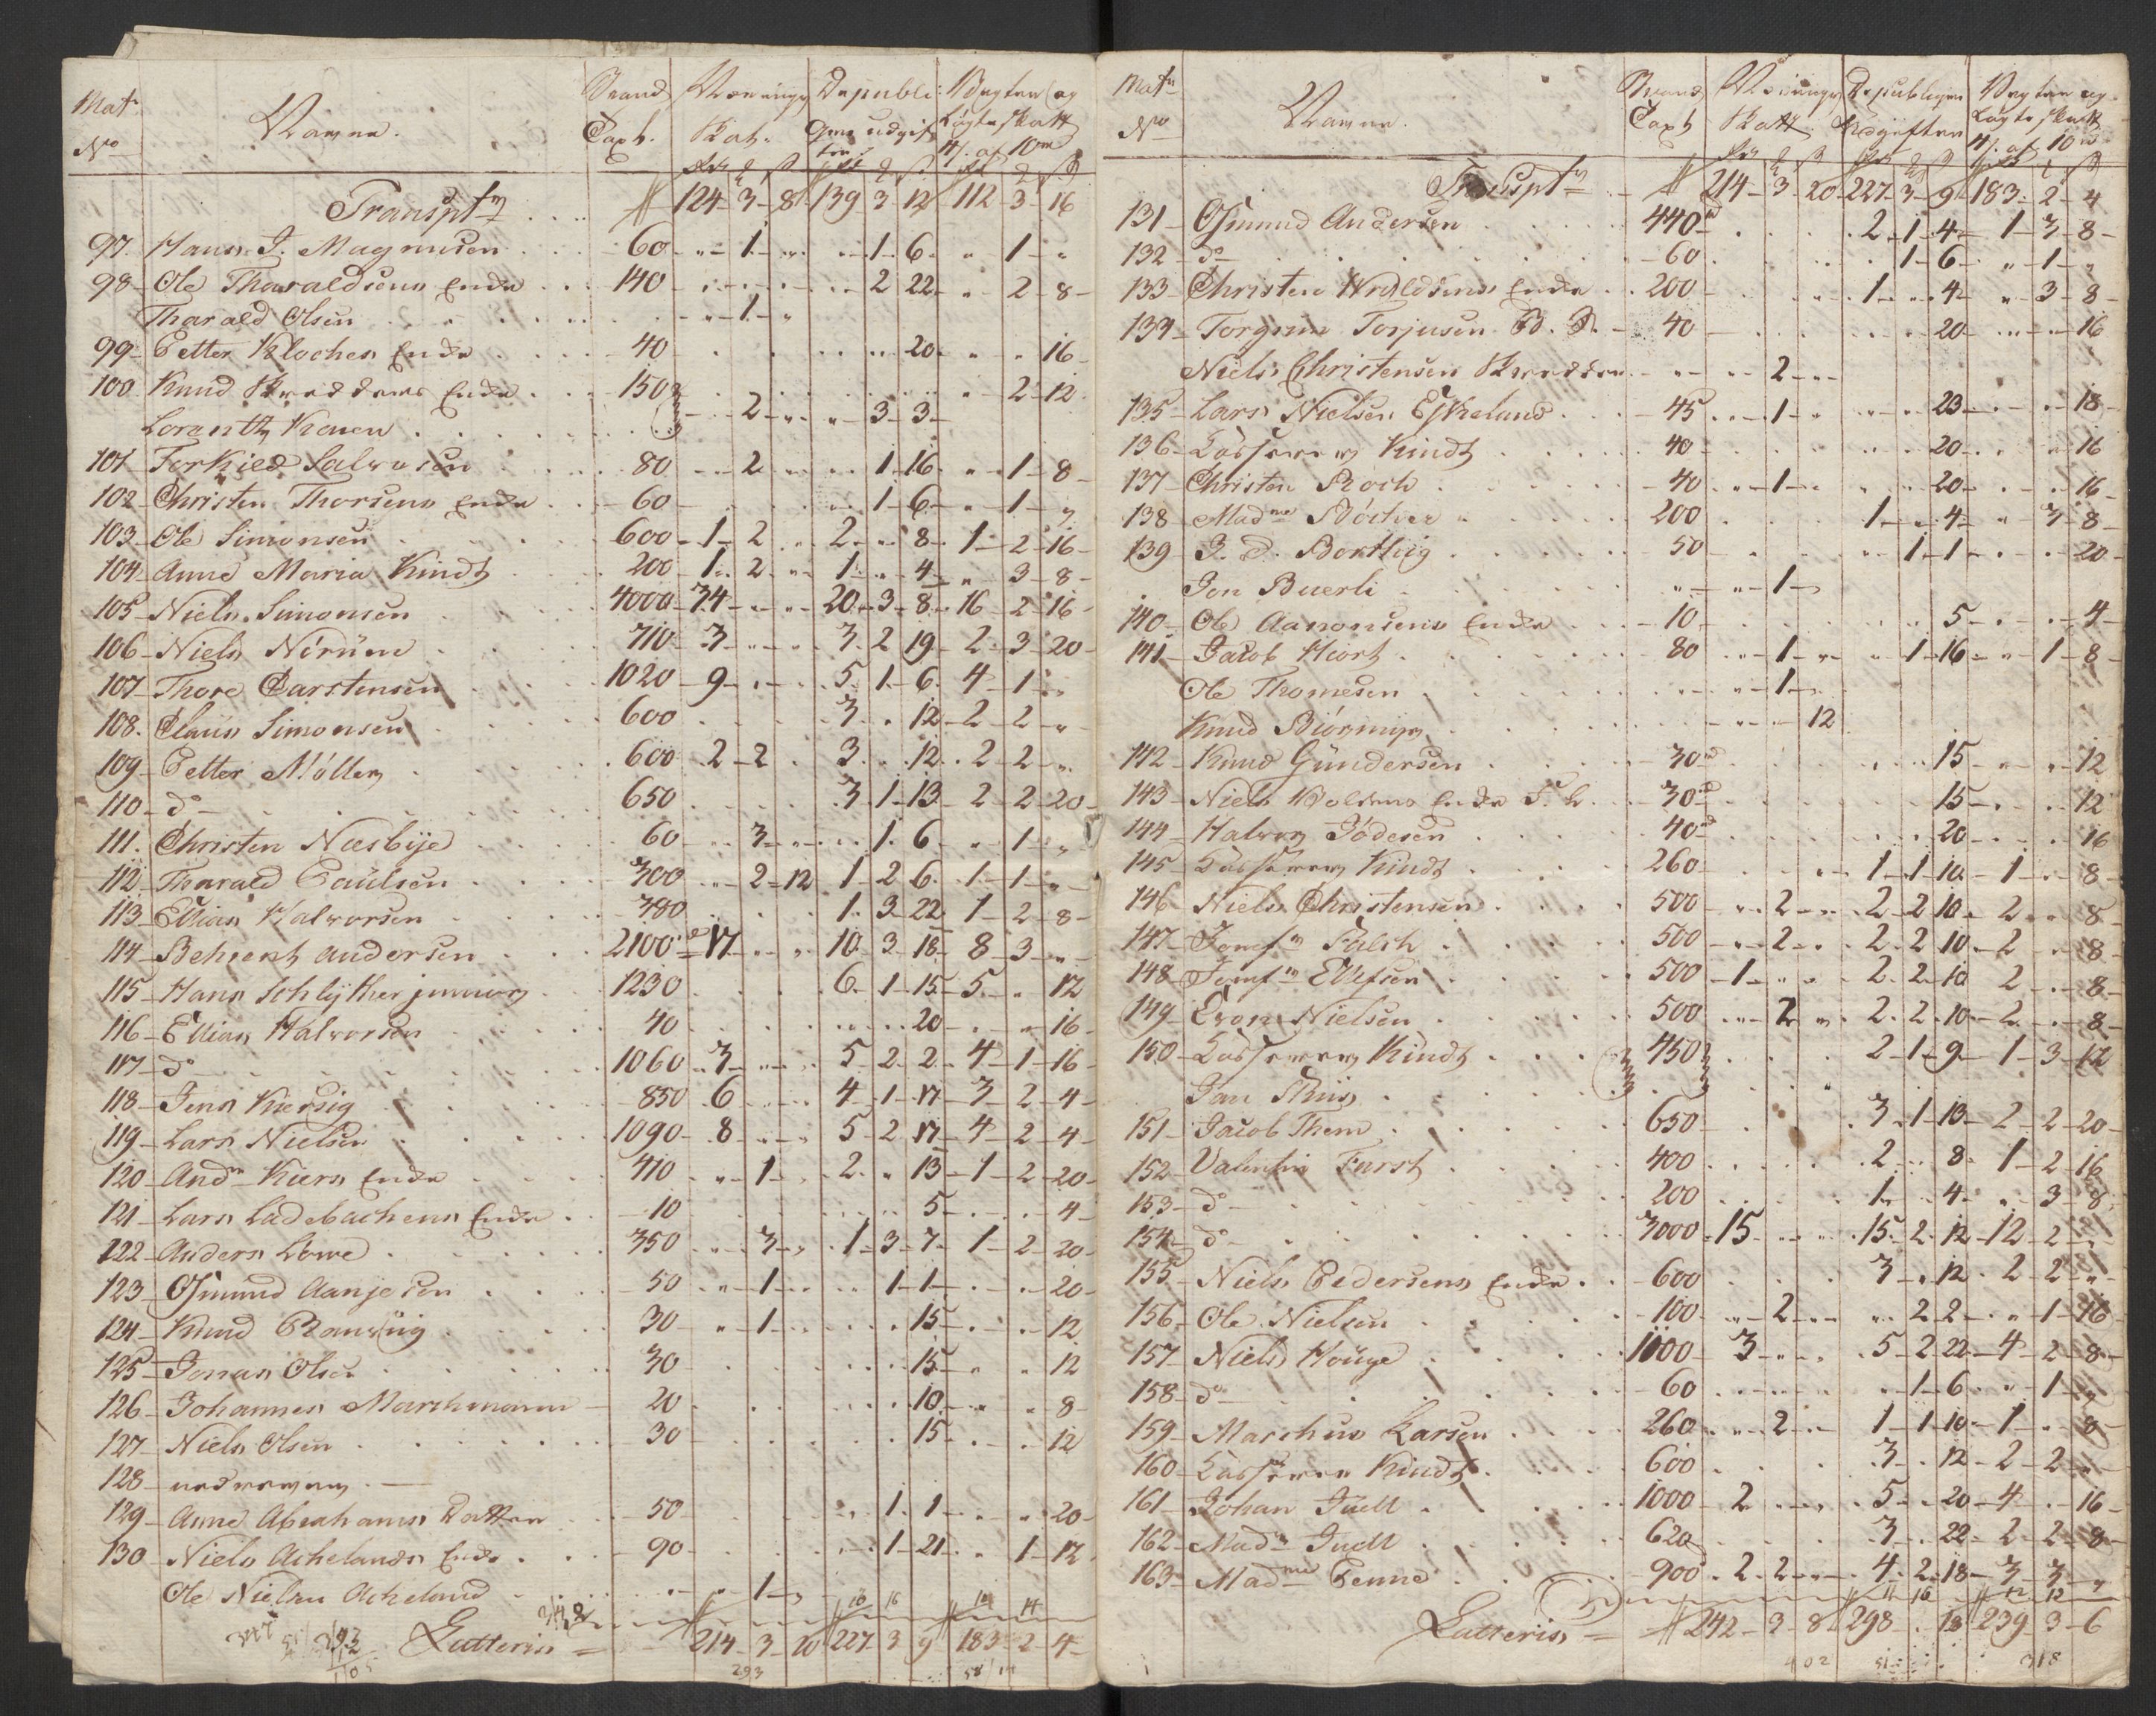 Matr No | Navne. | Brand Taxt. | Nærings Skat. | Republiqens udgifter | Vægter og Løgte Skatt 4/. af 10 rd
Transptr . . 124 - 3 - 8 | 139 3 12 | 112 - 3 - 16
97. Hans J. Magnusen . . 60 | " - 1 - " | " - 1 - 6 | " 1 - "
98 - Ole Tharaldsens Enke . . 140 | 2 22 | " 2 - 8
Tharald Olsen . . " - 1 - "
99 - Petter Klochers Enke . . 40 | 20 | " " 16
100 Knud Skredders Enke . . 150 | " 2 - 12
Lorentz Konow . . 2 - " | " - 3 - 3
101 - Torkied Salvesen . . 80 | " - 2 - " | 1 - 16 | " - 1 - 8
102 - Christen Thorsens Enke . . 60 | 1 - 6 | " - 1 - "
103 - Ole Simonsen . . 600 - 1 - 2 | 2 - " 8 | 1 - 2 - 16
104 - Anne Maria Kindt . . 200 - 1 - 2 - " | 1 - " 4 | " 3 - 8
105 - Niels Simonsen . . 4000 - 34 - " - " | 20 - 3 - 8 | 16 - 2 - 16
106 - Niels Nórüm . . 710 - 3 - " - " | 3 - 2 19 | 2 - 3 - 20
107 - Thore Carstensen . . 1020 - 9 - " - " | 5 - 1 - 6 | 4 - 1 - "
108. Claus Simonsen . . 600 | 3 - " 12 | 2 - 2 - "
109 - Petter Móller . . 600 - 2 - 2 | 3 - " 12 | 2 - 2 - "
110 - do . . 650 | 3 - 1 - 13 | 2 - 2 - 20
111. Christen Næsbÿe . . 60 | " - 3 - " | " 1 - 6 | " - 1 - "
112 - Tharald Paulsen . . 300 | " - 2 - 12 | 1 - 2 6 | 1 - 1 - "
113 - Ellias Halvorsen . . 380 | 1 - 3 - 22 | 1 - 2 - 8
114 - Behrent Andersen . . 2100 - 17 - " - " | 10 - 3 - 18 | 8 - 3 - "
115 - Hans Schlÿther junior . . 1230 | 6 - 1 - 15 | 5 - " - 12
116 - Ellias Halvorsen . . 40 | 20 | " - 16
117 - do . . 1060 - 3 - " | 5 - 2 - 2 | 4 - 1 - 16
118 - Jens Kiersig . . 850 - 6 - " | 4 - 1 - 17 | 3 - 2 - 4
119 - Lars Nielsen . . 1090 - 8 - " - " | 5 - 2 17 | 4 - 2 - 4
120 - Andr Kiers Enke . . 410 | " - 1 - " | 2 - " 13 | 1 - 2 - 20
121 - Lars Ladebachens Enke . . 10 | 5 | 4
122 - Anders Lowe . . 350 | " - 3 - " | 1 - 3 - 7 | 1 - 2 - 20
123 - Osmund Aanjesen . . 50 | " - 1 - " | 1 - 1 | " - 20
124 - Knud . . 30 | " - 1 - " | 15 | " - 12
125 - Jonas Olsen . . 30 | 15 | " 12
126 - Johannes Marchmann - 20 | 10 | " 8
127 - Niels Olsen . . 30 | 15 | 12
128 -
129 - Anne Abrahams Datter . . 50 | 1 - 1 | " 20
130 - Niels Achelands Enke . . 90 | 1 - 21 | 1 - 12
Ole Nielsen Acheland . . 1 - "
Latteris = 214 - 3 - 20 | 227 3 9 | 183 - 2 - 4
Matr No | Navne. | Brands Taxt | Nærings Skatt | Republiqens Udgifter | Vægter og Løgte Skatt 4/. af 10 rd
Transptr . . 214 - 3 - 20 | 227 - 3 - 9 | 183 - 2 - 4
131 - Osmund Andersen . . 440 | 2 - 1 - 4 | 1 - 3 - 8
132 - do . . 60 | 1 - 6 | " - 1 - "
133 - Christen Wraldsens Enke . . 200 | 1 - " 4 | " - 3 - 8
134 - Torgrim Torjusen . . 40 | 20 | 16
Niels Christensen Skredder - " - 2 - "
135 - Lars Nielsen Eskeland . . 45 | " - 1 - " | 23 | 18
136 - Kindt . . 40 | 20 | 16
137 - Christen Roch . . 40 | " - 1 - " | 20 | 16
138 - Madme Bótcher . . 200 | 1 - " 4 | " 3 - 8
139 J. D. Bortlvig . . 50 | 1 - 1 | 20
Jon Buerli . . " - 1 - "
140 - Ole Aanonsens Enke . . 10 | 5 | 4
141 - Jacob Hiort . . 80 | " - 1 - " | 1 - 16 | " - 1 - 8
Ole Thomesen . . " - 1 - "
Knud Biórnings . . 12
142 - Knud Gündersen . . 30 | 15 | 12
143 - Niels Enke . . 30 | 15 | 12
144 - Halvor Jódesen . . 40 | 20 | 16
145 - Kindt . . 260 | 1 - 1 - 10 | 1 - " 8
146 - Niels Christensen . . 500 | " - 2 - " | 2 - 2 10 | 2 - " 8
147 - Falch . . 500 | " - 2 - " | 2 - 2 10 | 2 - " 8
148 - Ellefsen . . 500 - 1 - " | 2 - 2 - 10 | 2 - " 8
149 - Nielsen . . 500 | " - 2 - " | 2 - 2 - 10 | 2 - " 8
150 - Kindt . . 450 | 2 - 1 - 9 | 1 - 3 - 12
Jan Thiis . .
151 - Jacob Them . . 650 | 3 - 1 - 13 | 2 - 2 - 20
152 - Valentin Furst . . 400 | 2 - " 8 | 1 - 2 - 16
153 - do . . 200 | 1 - " 4 | " 3 - 8
154 - do . . 3000 - 15 - " - " | 15 - 2 - 12 | 12 - 2 - "
155 - Niels Pedersens Enke . . 600 | 3 - " 12 | 2 - 2 - "
156 - Ole Nielsen . . 100 | " - 2 - " | " 2 - 2 | " - 1 - 16
157 - Niels Hoüge . . 1000 - 3 - " | 5 - 2 22 | 4 - 2 - 8
158 - do . . 60 | 1 - 6 | " - 1 - "
159 - Marchus Larsen . . 260 | " - 2 - " | 1 - 1 - 10 | 1 - " 8
160 - Kindt . . 600 | 3 - " 12 | 2 - 2 - "
161 - Johan Juell . . 1000 - 2 - " | 5 - " 20 | 4 - " 16
162 - Madm Juell . . 620 | 3 - " 22 | 2 - 2 - 8
163 - Madme Penne . . 900 - 2 - 2 - " | 4 - 2 - 18 | 3 - 3 - "
Latteris = 242 - 3 - 8 | 298 " 18 | 239 - 3 - 6